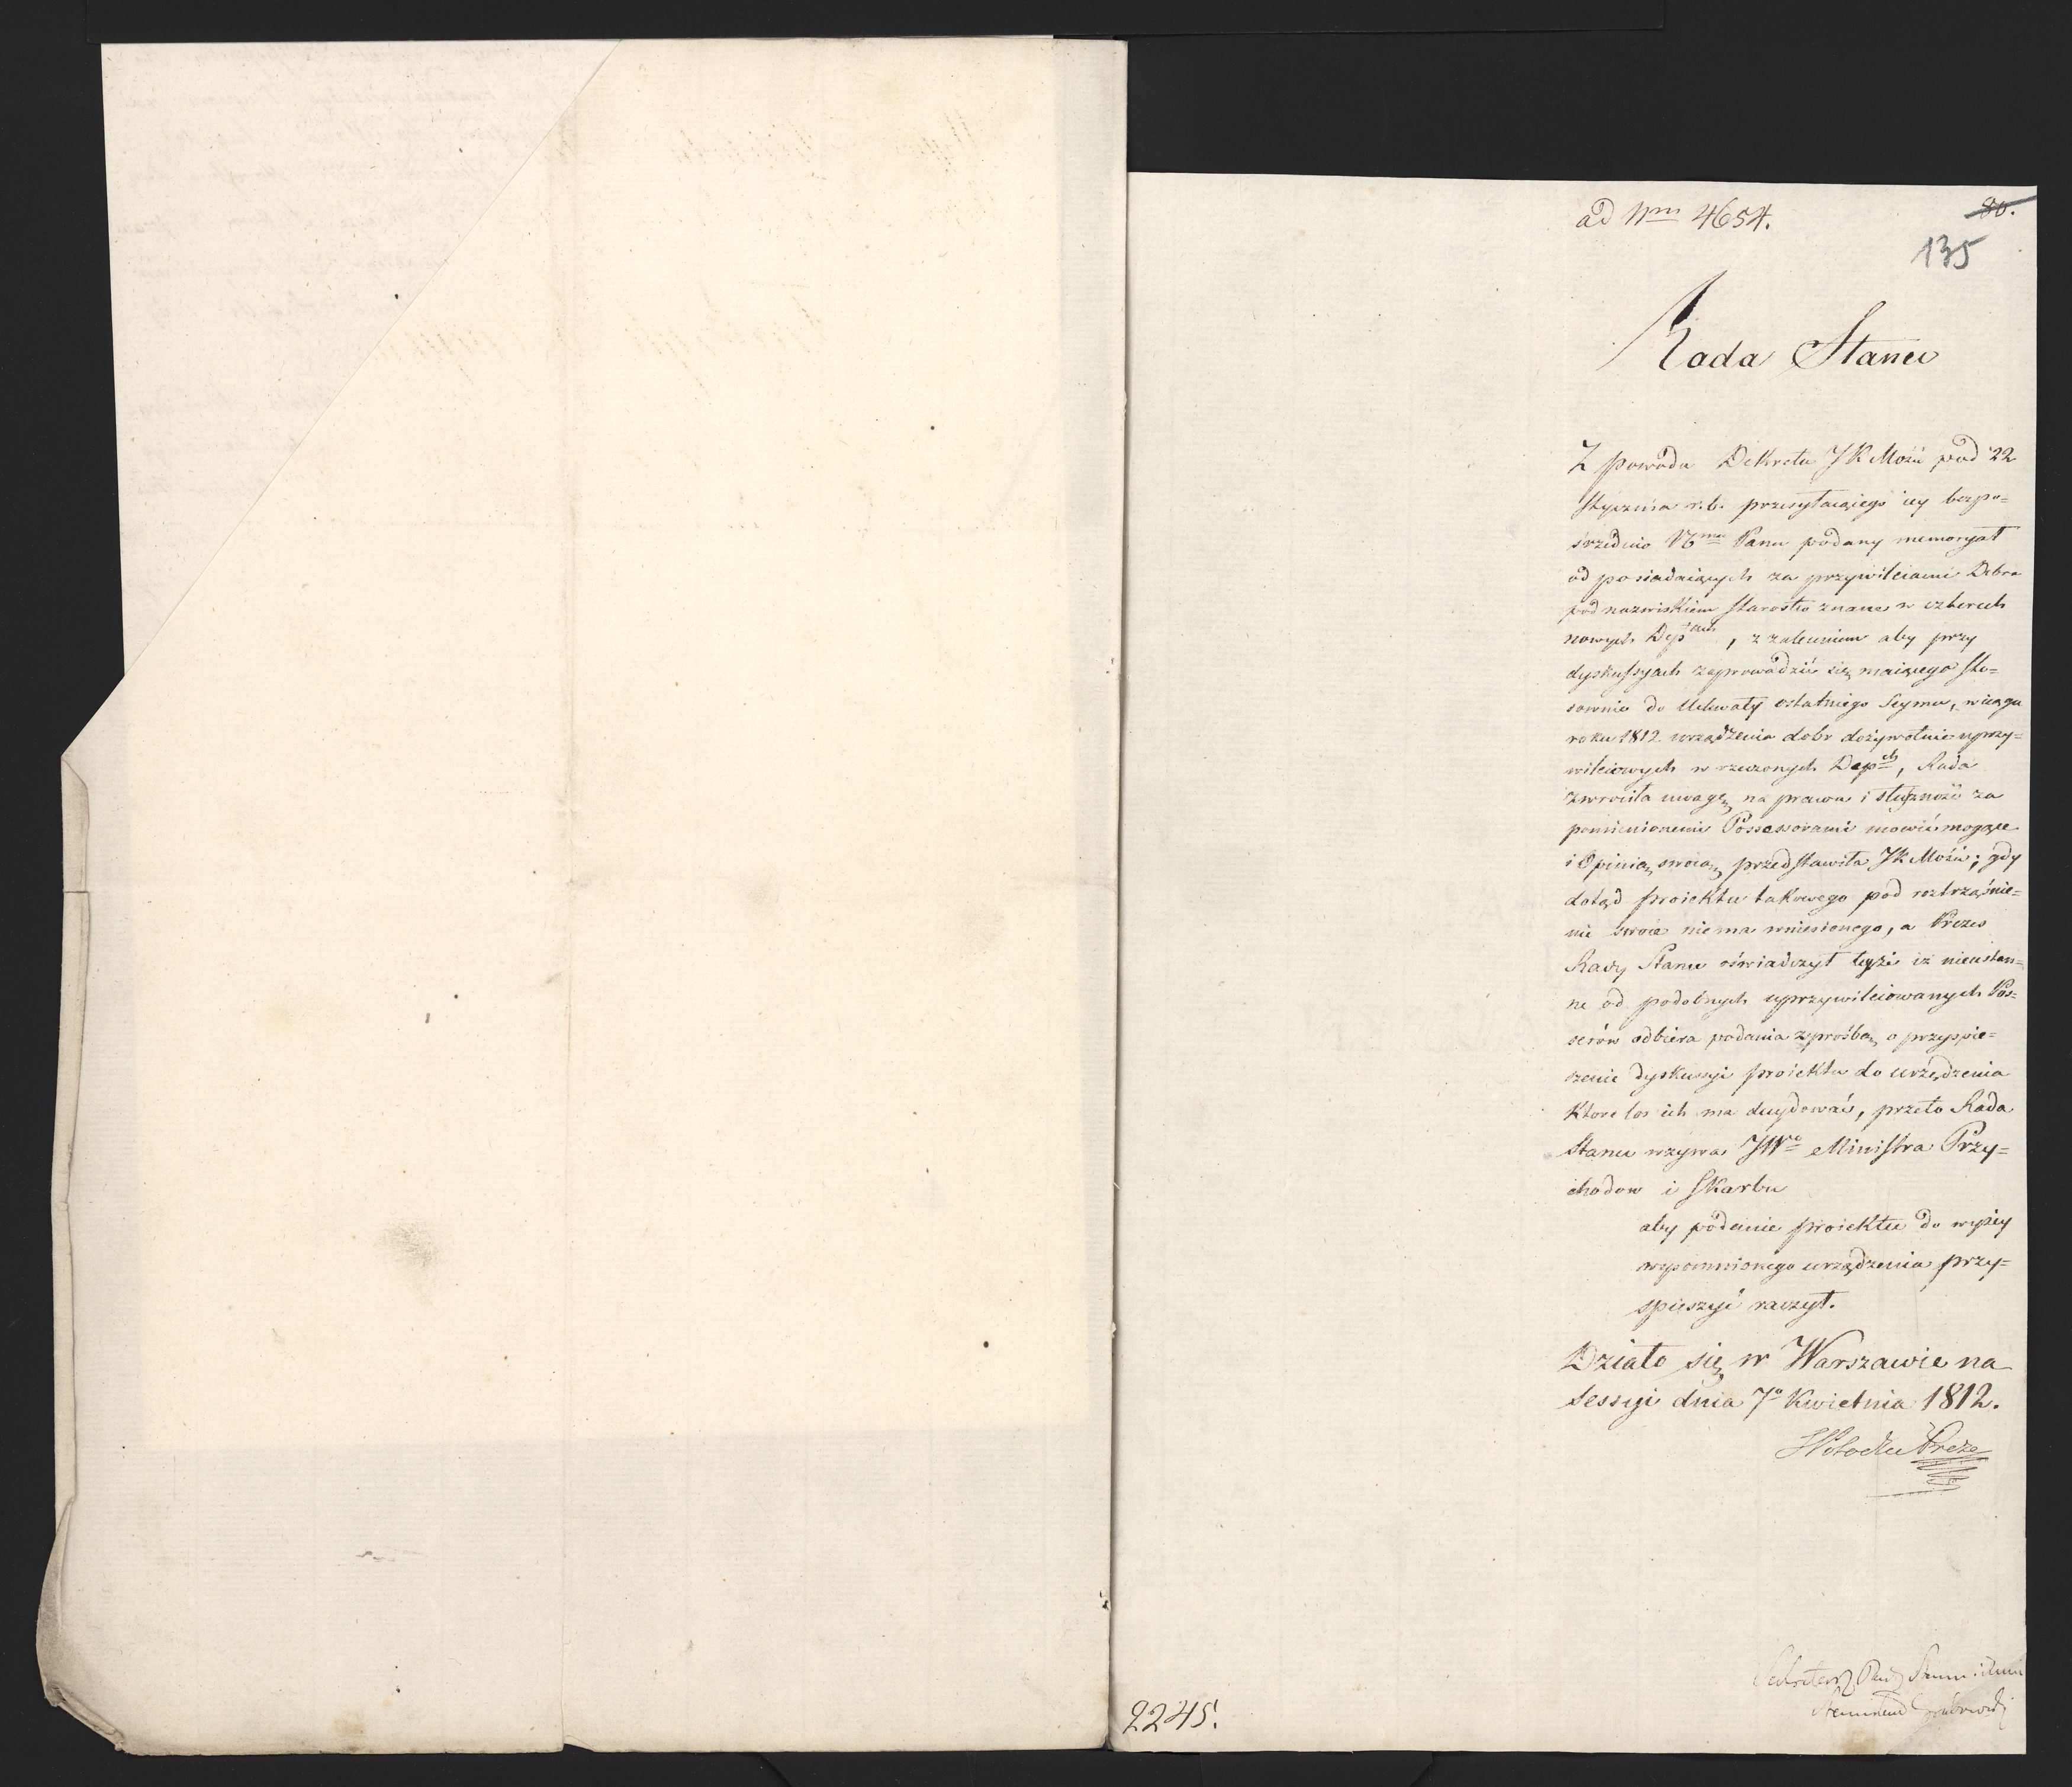 ad Nrm 4654.
80.
135
Rada Stanu
Z powodu Dekretu JKMości pod 22
Stycznia r. b. przesyłaiącego iey bezpo=
srzednio Panu podany memoryał
od posiadaiących za przywileiami Dobra
pod nazwiskiem Starostw znane w czterech
nowych Depach, z zaleceniem aby przy
dyskussyach zaprowadzić się maiącego sto=
sownie do Uchwały ostatniego Seymu, w ciągu
roku 1812 urządzenia dobr dożywotnie uprzy=
wileiowych w rzeczonych Depch, Rada
zwrociła uwagę na prawa i słuszność za
pomienionemi Possessorami mowić mogące
i Opinią swoią przedstawiła JKMości; gdy
dotąd proiektu takowego pod roztrząśnie=
nie swoie niema wniesionego, a Prezes
Rady Stanu oświadczył teyże iż nieustan=
ne od podobnych uprzywileiowanych Pos=
serów odbiera podania z prośbą o przyspie=
szenie dyskussyi proiektu do urządzenia
ktore los ich ma decydować, przeto Rada
Stanu wzywa JWo Ministra Przy=
chodow i Skarbu
aby podanie proiektu do wyżey
wspomnionego urządzenia przy=
spieszyć raczył.
Działo się w Warszawie na
Sessyi dnia 7o Kwietnia 1812.
Potocki Prezes
Sekretarz Rady Stanu
Grabowski
2245.